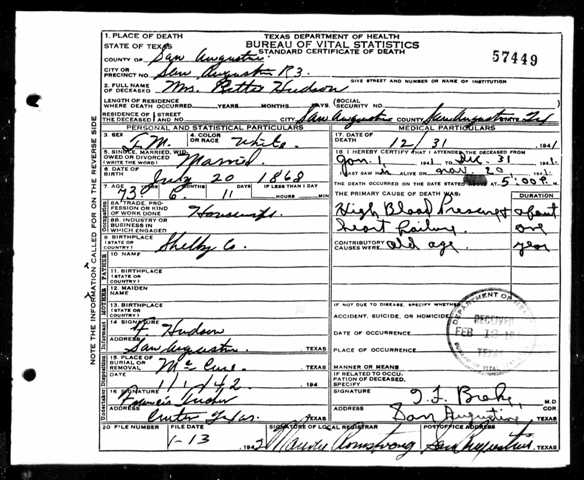 1. PLACE OF DEATH
STATE OF TEXAS
TEXAS DEPARTMENT OF HEALTH
BUREAU OF VITAL STATISTICS
STANDARD CERTIFICATE OF DEATH
57449
COUNTY OF San Augustine
CITY OR PRECINCT NO. San Augustine R3.
GIVE STREET AND NUMBER OR NAME OF INSTITUTION
2. FULL NAME OF DECEASED Mrs. Hudson
LENGTH OF RESIDENCE WHERE DEATH OCCURRED YEARS MONTHS DAYS. (SOCIAL SECURITY NO.
RESIDENCE OF THE DECEASED STREET AND NO. CITY San Augustine COUNTY San Augustine Tex
PERSONAL AND STATISTICAL PARTICULARS
3. SEX
4. COLOR OR RACE White.
5. SINGLE, MARRIED, WIDOWED OR DIVORCED (WRITE THE WORD) Married
6. DATE OF BIRTH July 20 1868
7. AGE 73 YEARS MONTHS 11 DAYS IF LESS THAN 1 DAY HOURS MIN
8A. TRADE, PROFESSION OR KIND OF WORK DONE Housewife
8B. INDUSTRY OR BUSINESS IN WHICH ENGAGED
9. BIRTHPLACE (STATE OR COUNTRY) Shelby Co.
10. NAME
11. BIRTHPLACE (STATE OR COUNTRY)
12. MAIDEN NAME
13. BIRTHPLACE (STATE OR COUNTRY)
14. SIGNATURE F. Hudson
ADDRESS San Augustine TEXAS
15. PLACE OF BURIAL OR REMOVAL TEXAS
DATE 1/1/42 194
16. SIGNATURE
ADDRESS Center Texas. TEXAS
MEDICAL PARTICULARS
17. DATE OF DEATH 12/31 1941
18. I HEREBY CERTIFY THAT I ATTENDED THE DECEASED FROM
Jan. 1 1941 TO Dec. 31 1941
LAST SAW ALIVE ON Nov. 20 1941
THE DEATH OCCURRED ON THE DATE STATED AT 5:00P.
THE PRIMARY CAUSE OF DEATH WAS: DURATION
High Blood Pressure about
heart failure one
CONTRIBUTORY CAUSES WERE: old age year
IF NOT DUE TO DISEASE, SPECIFY WHETHER:
ACCIDENT, SUICIDE, OR HOMICIDE
DATE OF OCCURRENCE
PLACE OF OCCURRENCE
MANNER OR MEANS
IF RELATED TO OCCUPATION OF DECEASED, SPECIFY
SIGNATURE M.D.
ADDRESS San Augustine TEXAS
20 FILE NUMBER
FILE DATE 1-13 1942
SIGNATURE OF LOCAL REGISTRAR Maude Armstrong
POST OFFICE ADDRESS San Augustine, TEXAS
RECEIVED
FEB
NOTE INFORMATION CALLED FOR ON THE REVERSE SIDE